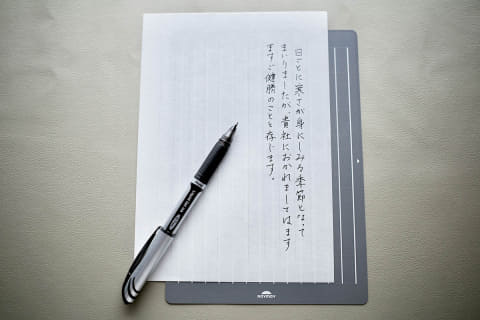 日ごとに寒さが身にしみる季節となって
まいりましたが、貴社におかれましてはます
ますご健勝のことと存じます。
RAYMAY